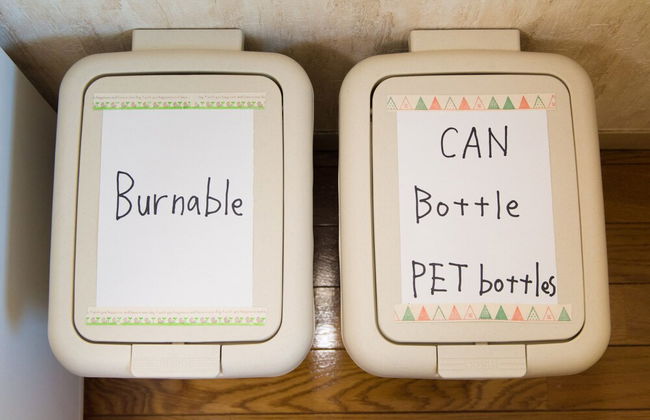 Burnable
CAN
Bottle
PET bottles